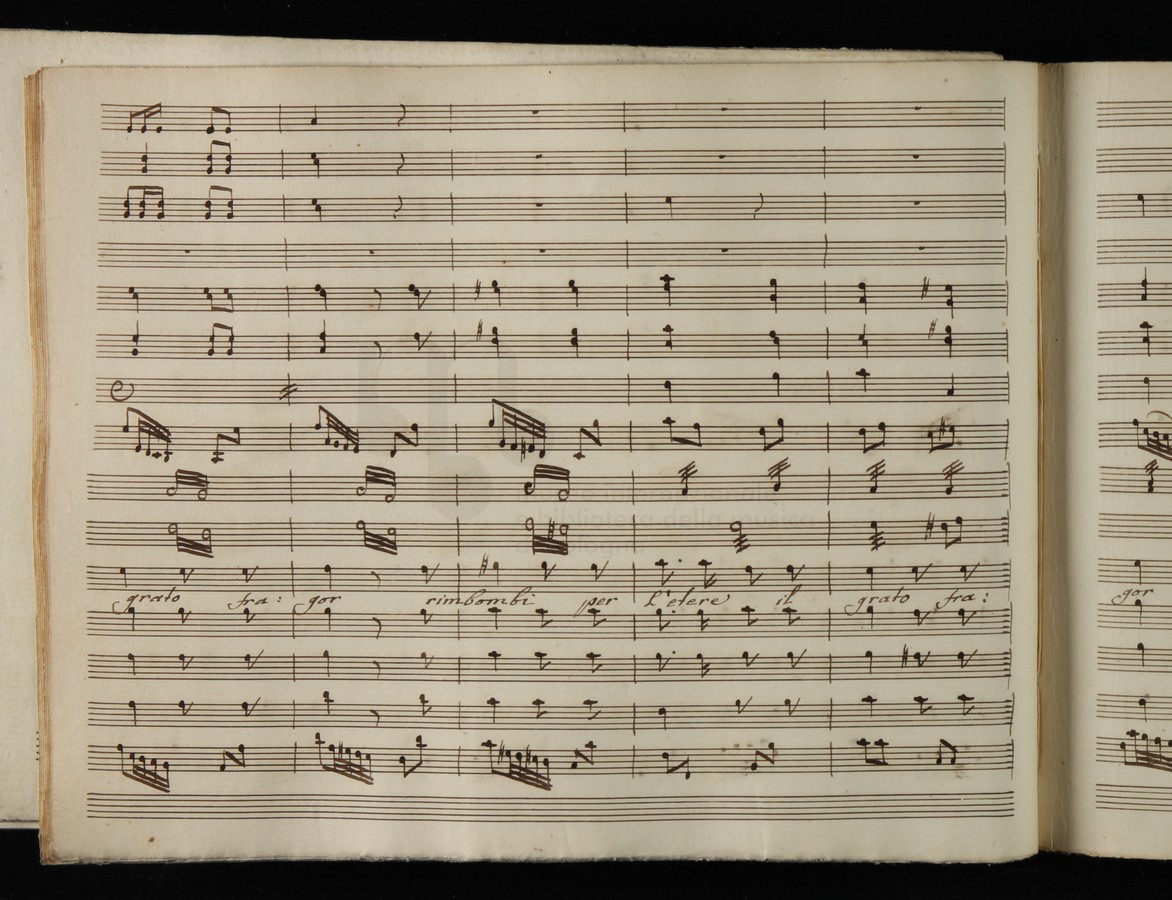 grato fra: gor rimbombi per l'etere il grato fra:
gor
e biblioteca della musica